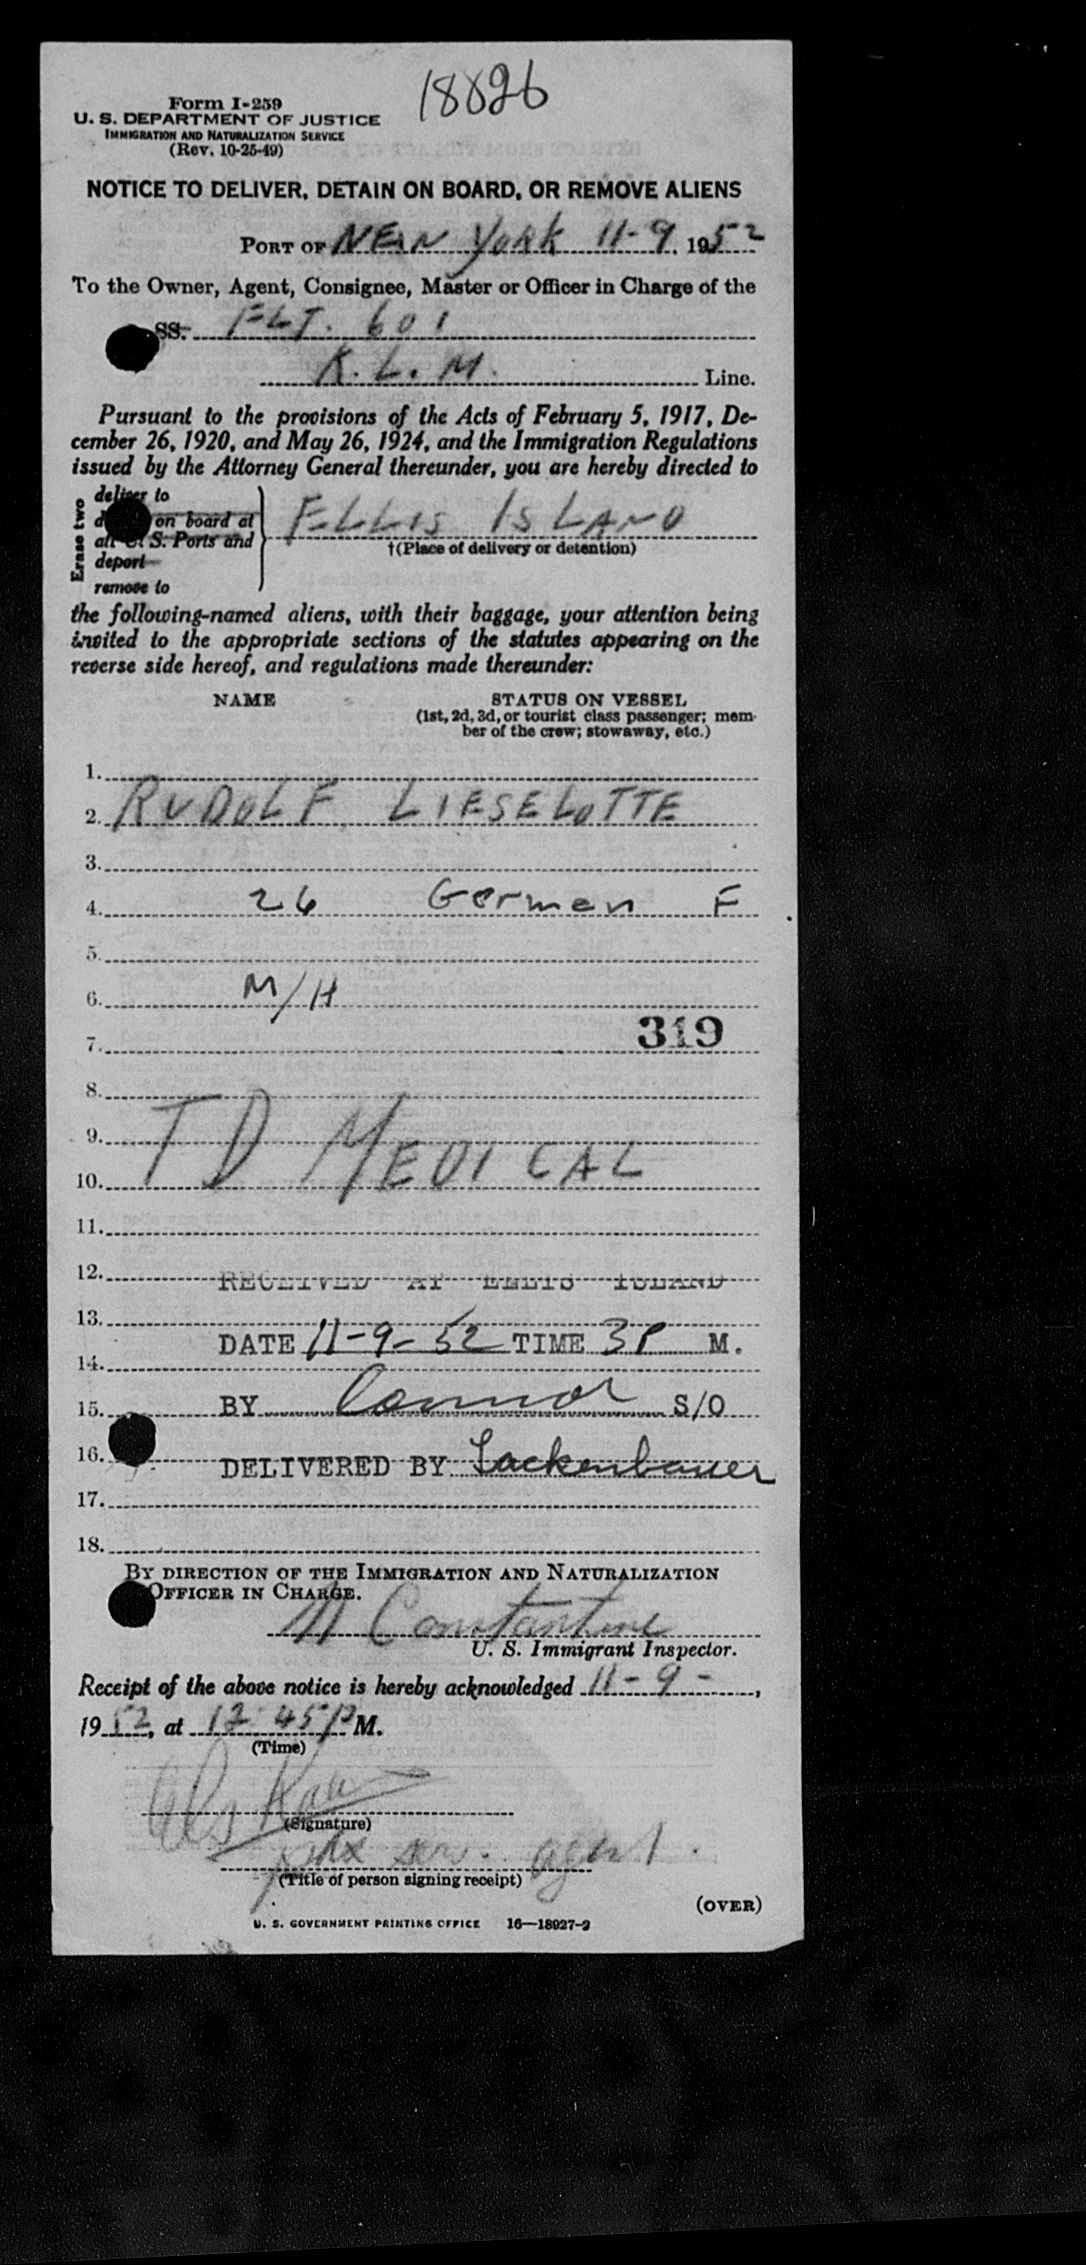 18826
Form I-259
U. S. DEPARTMENT OF JUSTICE
IMMIGRATION AND NATURALIZATION SERVICE
(Rev. 10-25-49)
NOTICE TO DELIVER, DETAIN ON BOARD, OR REMOVE ALIENS
PORT OF NEW YORK 11-9, 1952
To the Owner, Agent, Consignee, Master or Officer in Charge of the
SS. FLT. 601
K.L.M. Line.
Pursuant to the provisions of the Acts of February 5, 1917, De-
cember 26, 1920, and May 26, 1924, and the Immigration Regulations
issued by the Attorney General thereunder, you are hereby directed to
Erase two
deliver to
on board at
all U. S. Ports and
deport
remove to
ELLIS ISLAND
†(Place of delivery or detention)
the following-named aliens, with their baggage, your attention being
invited to the appropriate sections of the statutes appearing on the
reverse side hereof, and regulations made thereunder:
NAME STATUS ON VESSEL
(1st, 2d, 3d, or tourist class passenger; mem-
ber of the crew; stowaway, etc.)
1.
2. RUDOLF LIESELOTTE
3.
4. 26 German F
5.
6. M/H
7. 319
8.
9.
10. TD MEDICAL
11.
12. RECEIVED AT ELLIS ISLAND
13.
DATE 11-9-52 TIME 3P M.
14.
15. BY Connor S/O
16. DELIVERED BY Lackenbauer
17.
18.
BY DIRECTION OF THE IMMIGRATION AND NATURALIZATION
OFFICER IN CHARGE.
N Constantine
U. S. Immigrant Inspector.
Receipt of the above notice is hereby acknowledged 11-9-,
1952, at 12 45 P M.
(Time)
(Signature)
pax ser. agent.
(Title of person signing receipt)
(OVER)
U. S. GOVERNMENT PRINTING OFFICE 16—18927-2